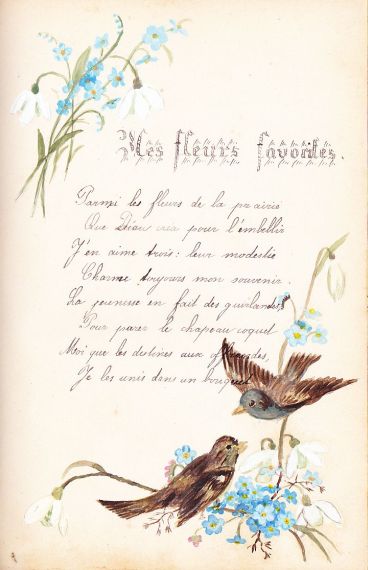 Mes fleurs favorites.
Parmi les fleurs de la prairie
Que Dieu créa pour l'embellir
J'en aime trois: leur modestie
Charme toujours mon souvenir.
La jeunesse en fait des guirlandes
Pour parer le chapeau coquet
Moi que les destines aux offrandes,
Je les unis dans un bouquet